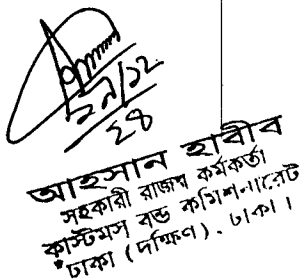 ২৯/১২
২৪
আহসান হাবীব
সহকারী রাজস্ব কর্মকর্তা
কাস্টমস্ বন্ড কমিশনারেট
ঢাকা (দক্ষিণ), ঢাকা।